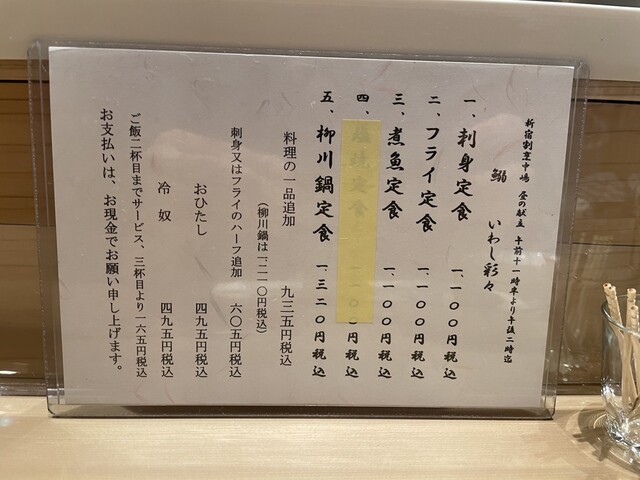 新宿割烹中嶋 昼の献立 午前十一時半より午後二時迄
鰯 いわし彩々
一、刺身定食 一、一〇〇円税込
二、フライ定食 一、一〇〇円税込
三、煮魚定食 一、一〇〇円税込
四、塩焼定食 一、一〇〇円税込
五、柳川鍋定食 一、三二〇円税込
料理の一品追加 九三五円税込
(柳川鍋は一二一〇円税込)
刺身又はフライのハーフ追加 六〇五円税込
おひたし 四九五円税込
冷奴 四九五円税込
ご飯二杯目までサービス、三杯目より一六五円税込
お支払いは、お現金でお願い申し上げます。